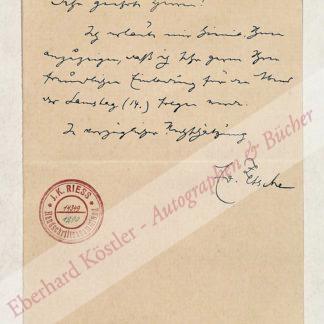 Sehr geehrte Herren!
Ich erlaube mir hiermit Ihnen
anzuzeigen, daß ich sehr gerne Ihrer
freundlichen Einladung für den Abend
des Samstag (14.) folgen werde.
In vorzüglicher Hochschätzung
J.K. RIESS
Eberhard Köstler - Autographen & Bücher